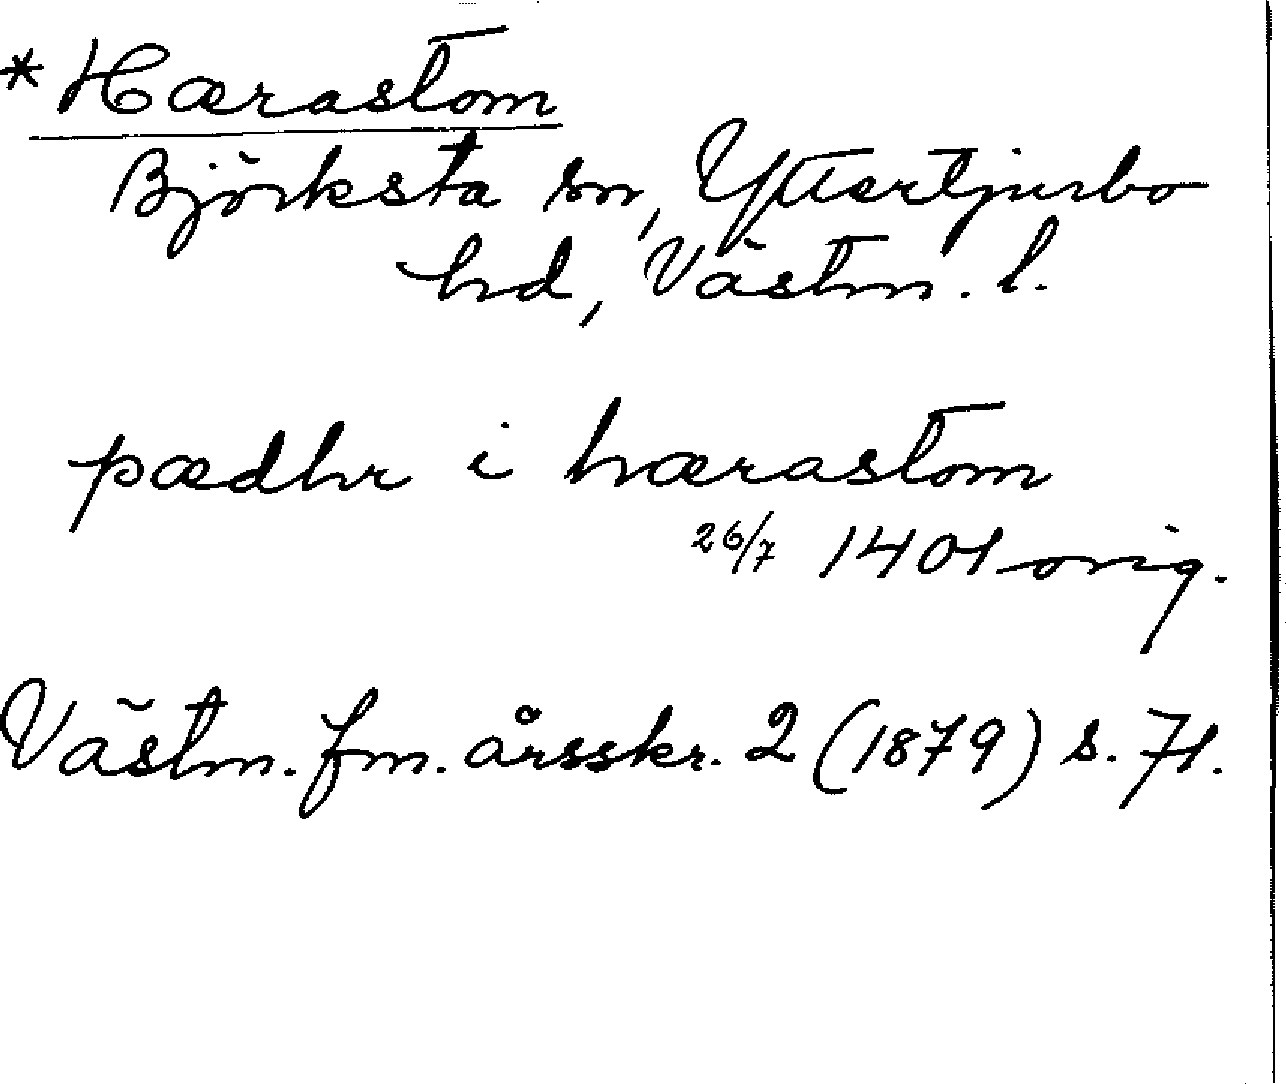 * Hærastom
Björksta sn, Yttertjurbo
hd, Västm. l.
pædhr i hærastom
26/7 1401 orig.
Västm. fm. årsskr. 2 (1879) s. 71.